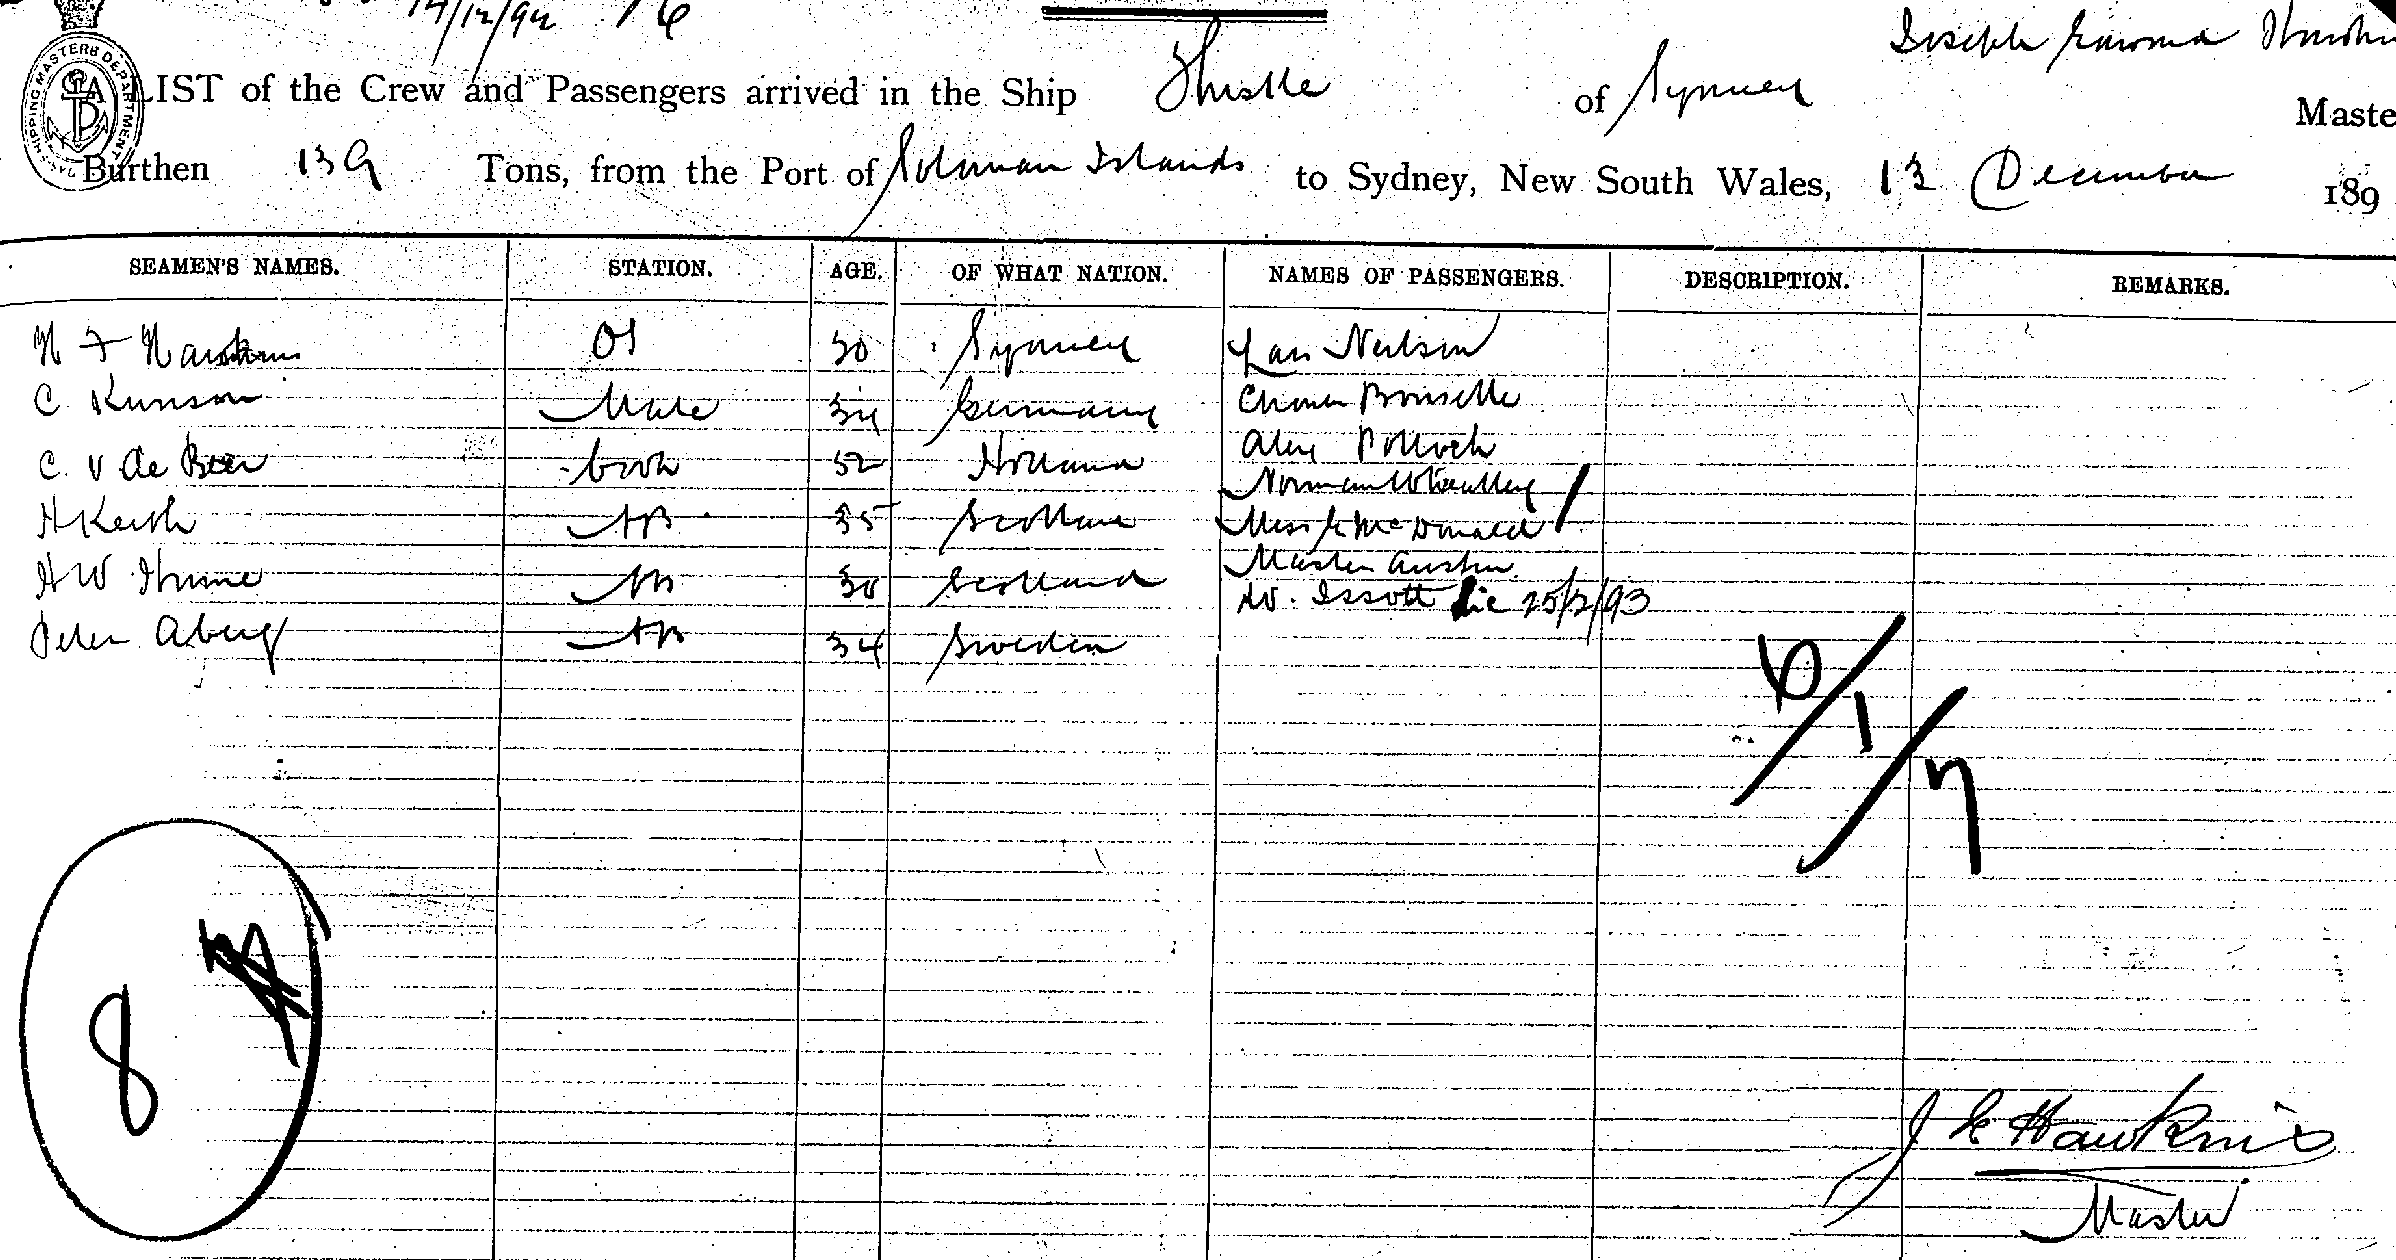 14/12/94
SHIPPING MASTERS DEPARTMENT
Joseph Edward Hawkins
LIST of the Crew and Passengers arrived in the Ship Thistle of Sydney Maste
Burthen 139 Tons, from the Port of Soloman Islands to Sydney, New South Wales, 13 December 189
SEAMEN'S NAMES. STATION. AGE. OF WHAT NATION. NAMES OF PASSENGERS. DESCRIPTION. REMARKS.
H F Hawkins OS 30 Sydney Lars Neilson
C. Kunson Mate 34 Germany
C. V de Beer Cook 52 Holland Alex Pollock
H Keith AB 35 Scotland Norman Wheatley
H W Hume AB 30 Scotland Miss E McDonald
Peter Aberg AB 34 Sweden Master Austin
W. Issott Lic 25/2/93
6/1/7
8
J E Hawkins
Master